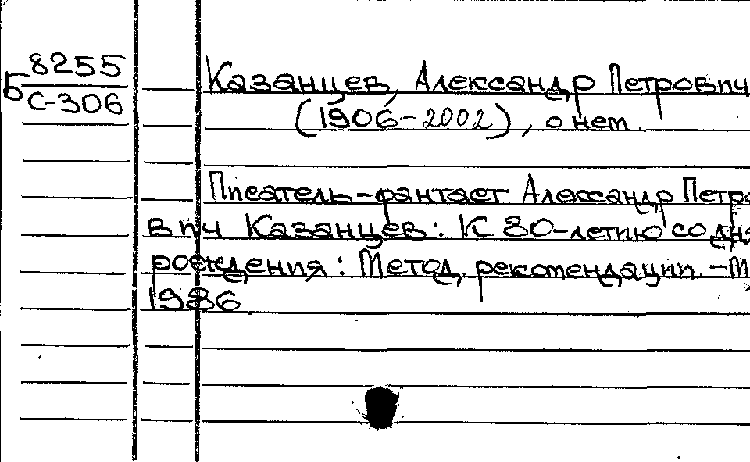 Б 8255
С-306
Казанцев, Александр Петрович
(1906-2002), о нем.
Писатель-фантаст Александр Петро
вич Казанцев: К 80-летию со дня
рождения: Метод. рекомендации. -М
1986